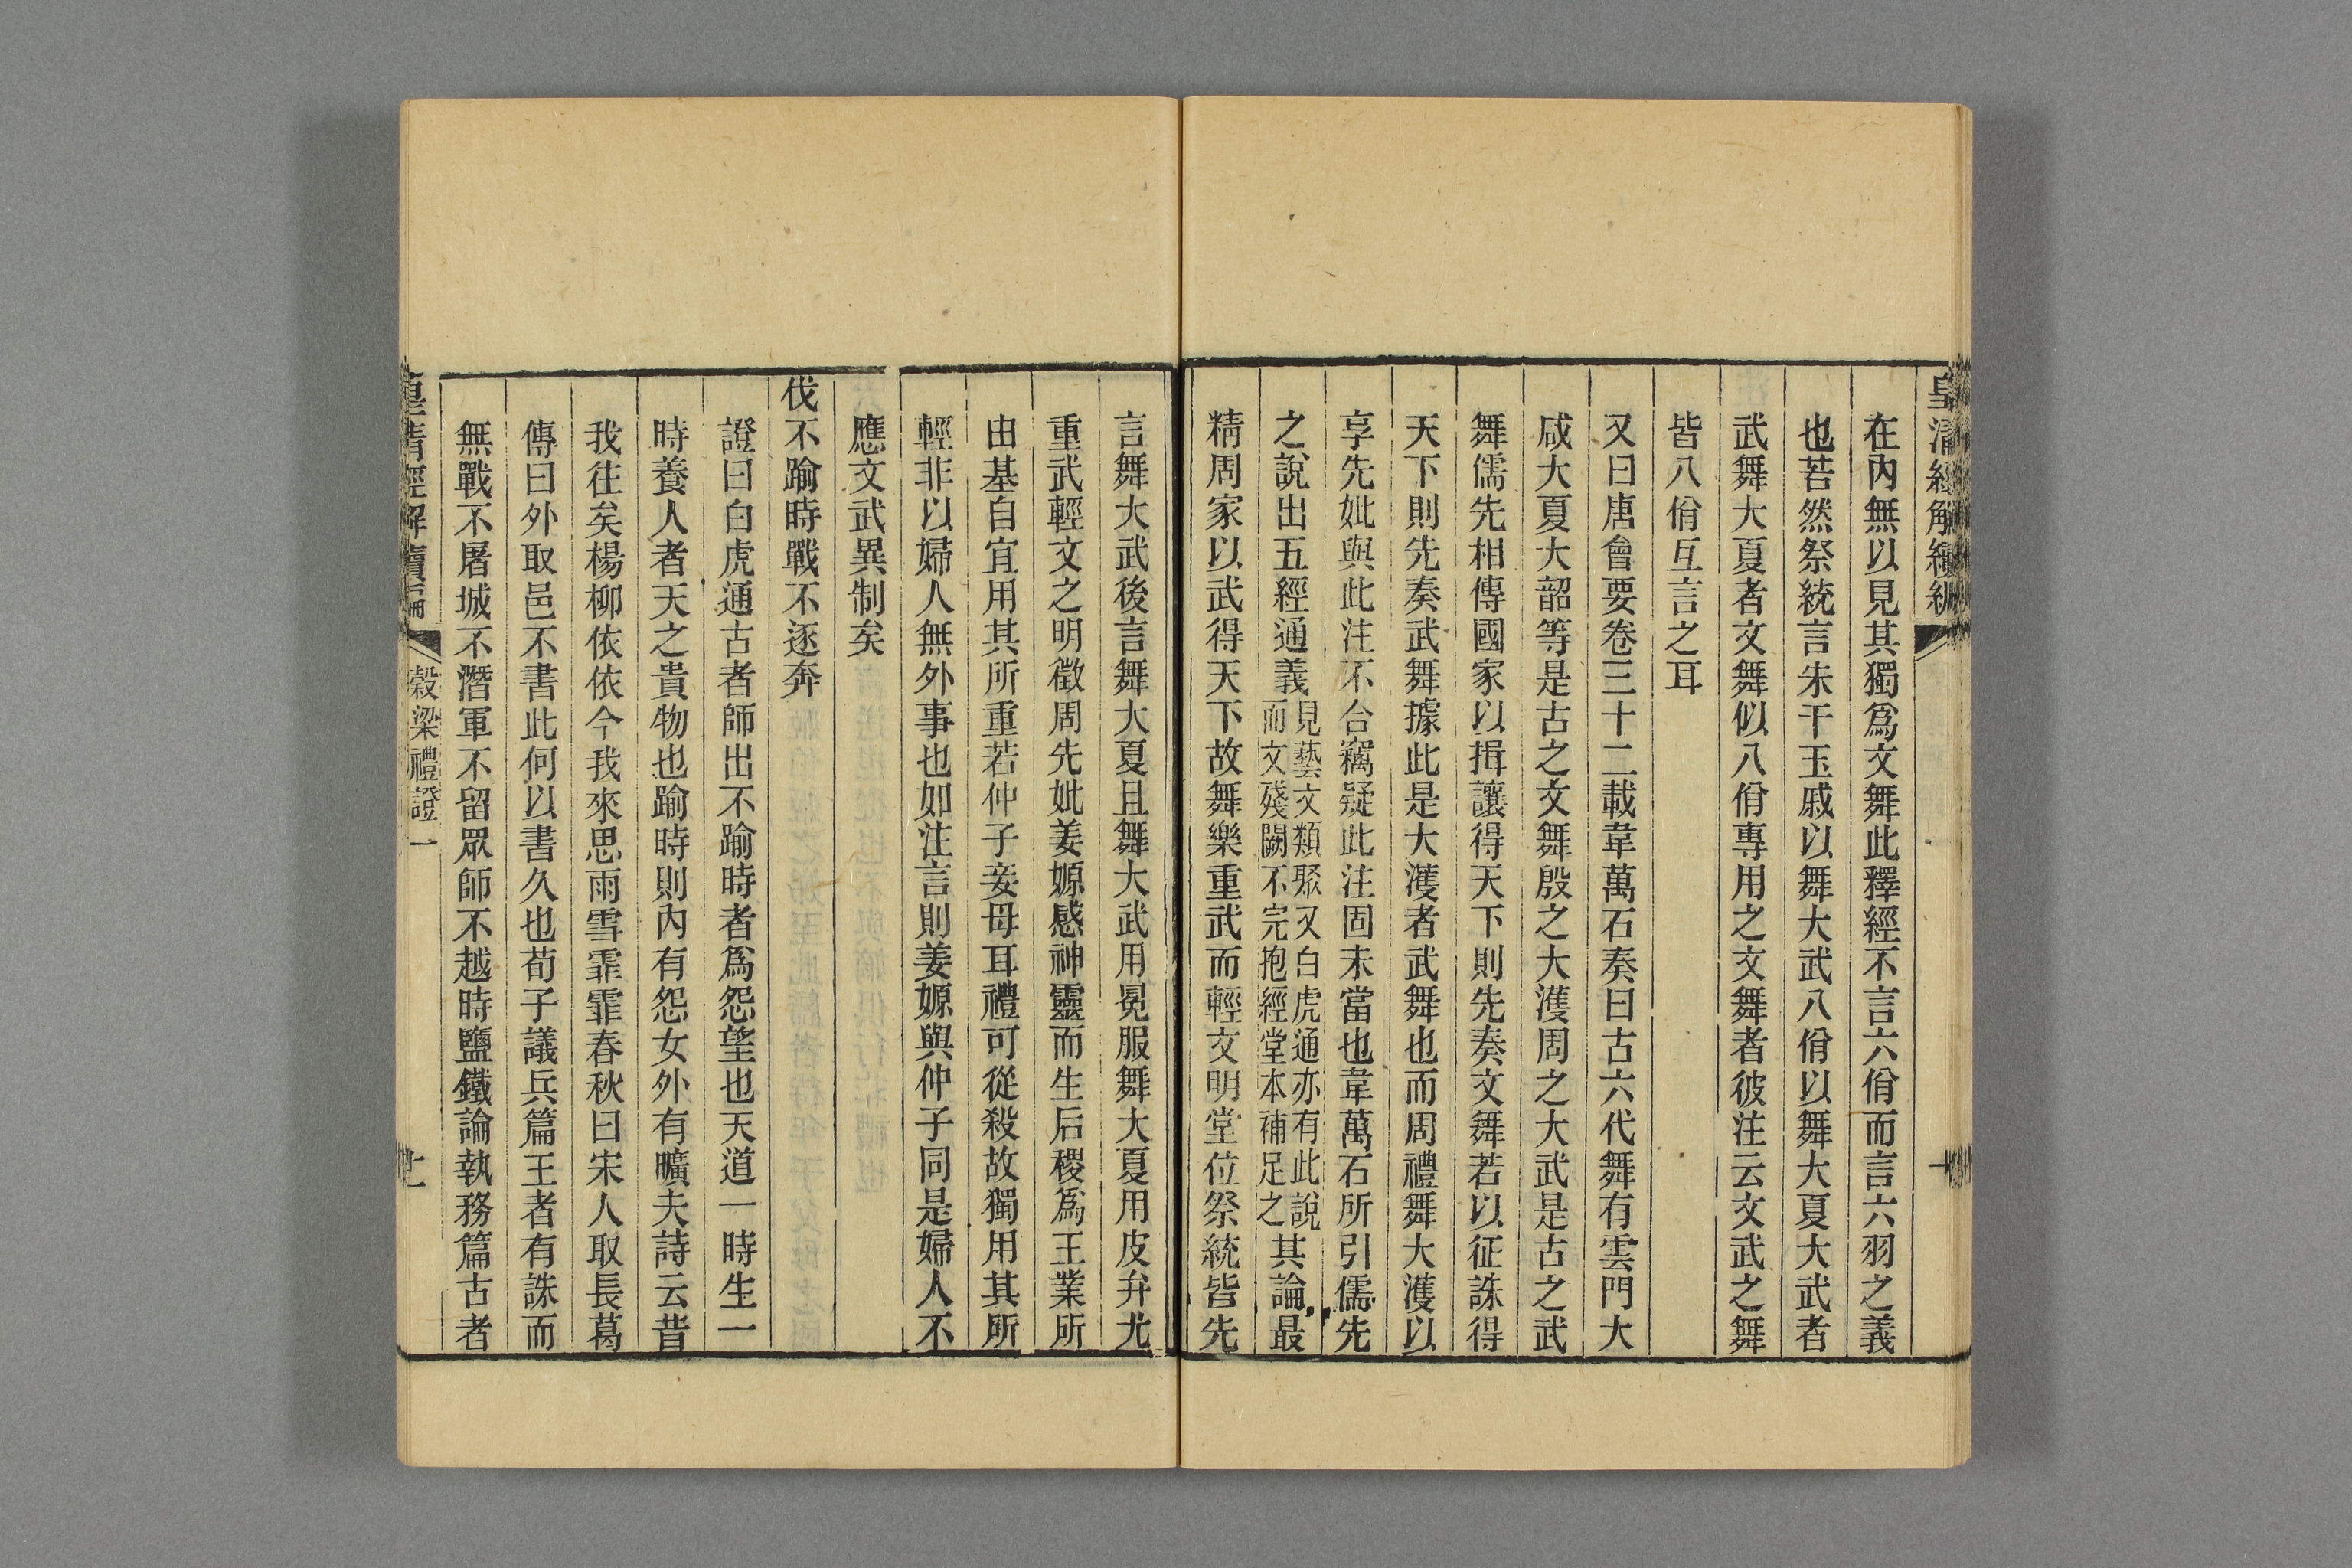 皇清經解續編
在內無以見其獨爲文舞此釋經不言六佾而言六羽之義
也若然祭統言朱干玉戚以舞大武八佾以舞大夏大武者
武舞大夏者文舞似八佾專用之文舞者彼注云文武之舞
皆八佾互言之耳
又曰唐會要卷三十二載韋萬石奏曰古六代舞有雲門大
咸大夏大韶等是古之文舞殷之大濩周之大武是古之武
舞儒先相傳國家以揖讓得天下則先奏文舞若以征誅得
天下則先奏武舞據此是大濩者武舞也而周禮舞大濩以
享先妣與此注不合竊疑此注固未當也韋萬石所引儒先
之說出五經通義見藝文類聚又白虎通亦有此說而文殘闕不完抱經堂本補足之其論最
精周家以武得天下故舞樂重武而輕文明堂位祭統皆先
言舞大武後言舞大夏且舞大武用冕服舞大夏用皮弁尤
重武輕文之明徵周先妣姜嫄感神靈而生后稷爲王業所
由基自宜用其所重若仲子妾母耳禮可從殺故獨用其所
輕非以婦人無外事也如注言則姜嫄與仲子同是婦人不
應文武異制矣
伐不踰時戰不逐奔
證曰白虎通古者師出不踰時者爲怨望也天道一時生一
時養人者天之貴物也踰時則內有怨女外有曠夫詩云昔
我往矣楊柳依依今我來思雨雪霏霏春秋曰宋人取長葛
傳曰外取邑不書此何以書久也荀子議兵篇王者有誅而
無戰不屠城不潛軍不留眾師不越時鹽鐵論執務篇古者
皇清經解續編
穀梁禮證一